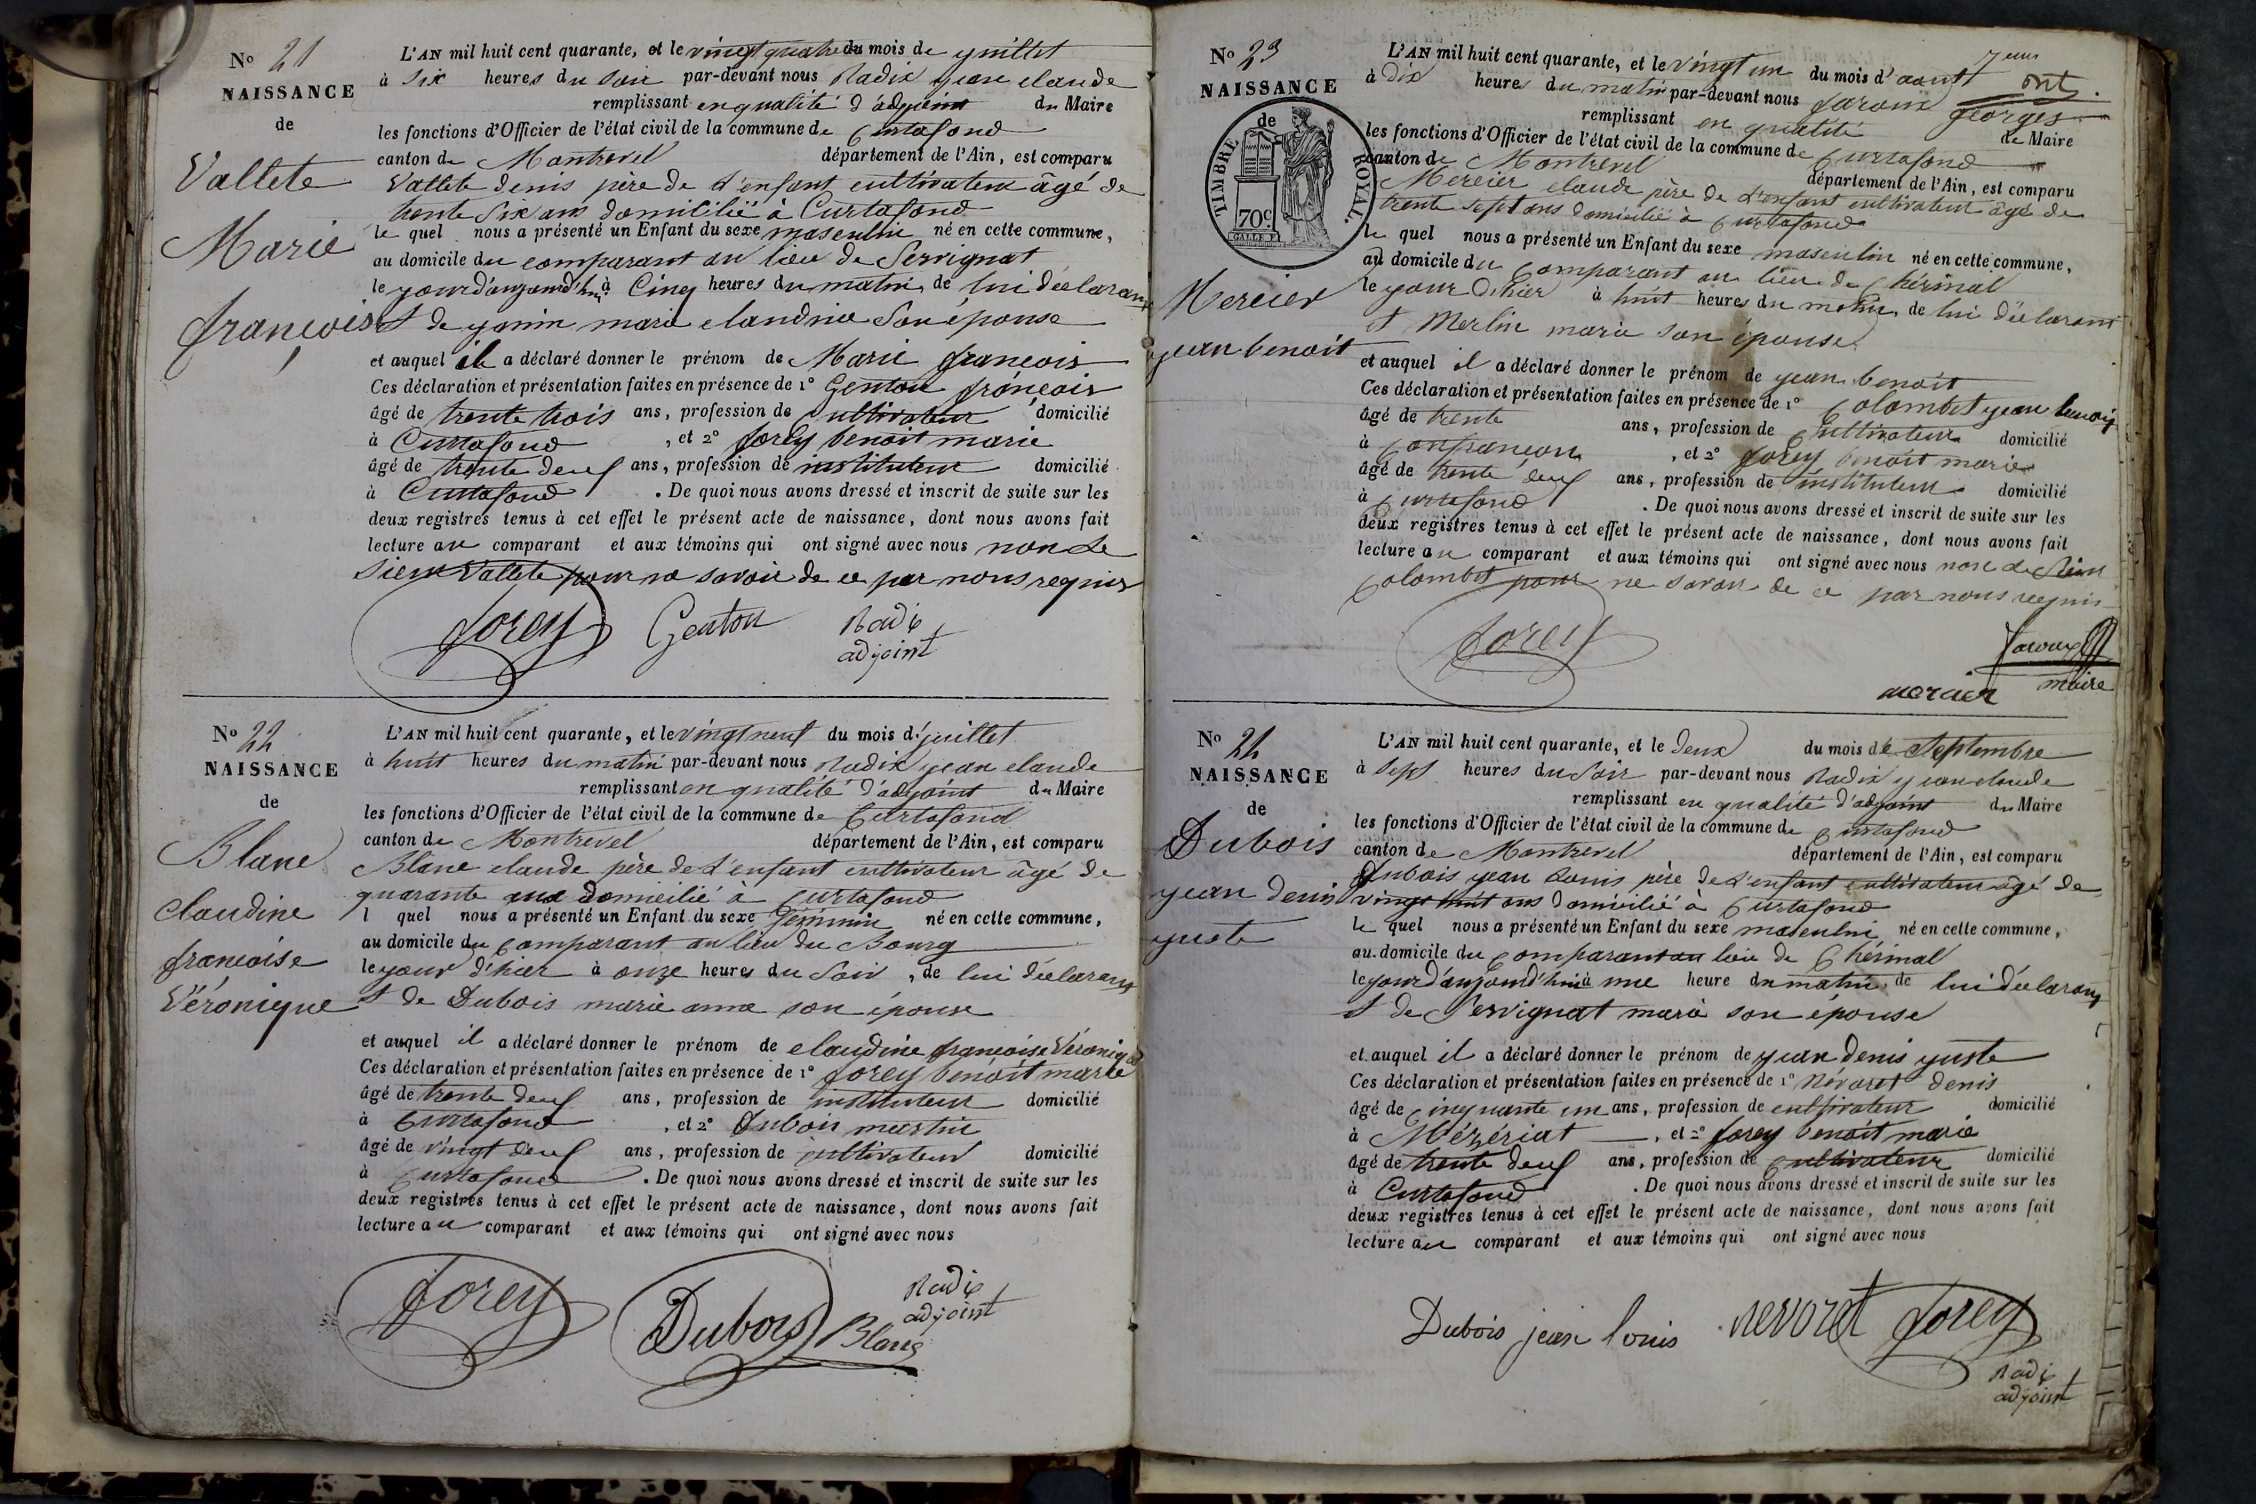 No 21
NAISSANCE
de
Vallete
Marie
françois
L'AN mil huit cent quarante, et le vingt quatre du mois de juillet
à six heures du soir par-devant nous Radix jean claude
remplissant en qualité d'adjoint du Maire
les fonctions d'Officier de l'état civil de la commune de Curtafond
canton de Montrevel département de l'Ain, est comparu
Vallete denis père de L'enfant cultivateur âgé de
trente six ans domicilié à Curtafond
le quel nous a présenté un Enfant du sexe masculin né en cette commune,
au domicile du comparant au lieu de Servignat
le jour d'aujourd'hui à Cinq heures du matin, de lui déclarant
et de jonin marie claudine son épouse
et auquel il a déclaré donner le prénom de Marie françois
Ces déclaration et présentation faites en présence de 1° Genton françois
âgé de trente trois ans, profession de cultivateur domicilié
à Curtafond, et 2° forey benoit marie
âgé de trente deuf ans, profession de instituteur domicilié
à Curtafond. De quoi nous avons dressé et inscrit de suite sur les
deux registres tenus à cet effet le présent acte de naissance, dont nous avons fait
lecture au comparant et aux témoins qui ont signé avec nous non le
sieur Vallete pour ne savoir de ce par nous requis
forey Genton Radix
adjoint
No 22
NAISSANCE
de
Blanc
claudine
françoise
Véronique
L'AN mil huit cent quarante, et le vingt neuf du mois d juillet
à huit heures du matin par-devant nous Radix jean claude
remplissant en qualité d'adjoint du Maire
les fonctions d'Officier de l'état civil de la commune de Curtafond
canton de Montrevel département de l'Ain, est comparu
Blanc claude père de L'enfant cultivateur âgé de
quarante ans domicilié à Curtafond
l quel nous a présenté un Enfant du sexe féminin né en cette commune,
au domicile du comparant au lieu du Bourg
le jour d'hier à onze heures du soir, de lui déclarant
et de Dubois marie anne son épouse
et auquel il a déclaré donner le prénom de claudine françoise Véronique
Ces déclaration et présentation faites en présence de 1° forey benoit marie
âgé de trente deuf ans, profession de instituteur domicilié
à Curtafond, et 2° Dubois martin
âgé de vingt deuf ans, profession de cultivateur domicilié
à Curtafond. De quoi nous avons dressé et inscrit de suite sur les
deux registres tenus à cet effet le présent acte de naissance, dont nous avons fait
lecture au comparant et aux témoins qui ont signé avec nous
forey Dubois Blanc Radix
adjoint
No 23
NAISSANCE
de
TIMBRE ROYAL.
70c.
Mercier
jean benoit
L'AN mil huit cent quarante, et le vingt un du mois d'aout
à dix heures du matin par-devant nous faroux georges
remplissant en qualité de Maire
les fonctions d'Officier de l'état civil de la commune de Curtafond
canton de Montrevel département de l'Ain, est comparu
Mercier claude père de L'enfant cultivateur âgé de
trente sept ans domicilié à Curtafond
le quel nous a présenté un Enfant du sexe masculin né en cette commune,
au domicile du comparant au lieu de Chérinal
le jour d'hier à huit heures du matin, de lui déclarant
et Merlin marie son épouse
et auquel il a déclaré donner le prénom de jean benoit
Ces déclaration et présentation faites en présence de 1° Colombet jean benoit
âgé de trente ans, profession de cultivateur domicilié
à Confrançon, et 2° forey benoit marie
âgé de trente deuf ans, profession de instituteur domicilié
à Curtafond. De quoi nous avons dressé et inscrit de suite sur les
deux registres tenus à cet effet le présent acte de naissance, dont nous avons fait
lecture au comparant et aux témoins qui ont signé avec nous non le sieur
Colombet pour ne savoir de ce par nous requis
forey faroux
mercier maire
No 24
NAISSANCE
de
Dubois
jean denis
juste
L'AN mil huit cent quarante, et le deux du mois de Septembre
à sept heures du soir par-devant nous Radix jean claude
remplissant en qualité d'adjoint du Maire
les fonctions d'Officier de l'état civil de la commune de Curtafond
canton de Montrevel département de l'Ain, est comparu
Dubois jean Louis père de L'enfant cultivateur âgé de
vingt huit ans domicilié à Curtafond
le quel nous a présenté un Enfant du sexe masculin né en cette commune,
au domicile du comparant au lieu de Chérinal
le jour d'aujourd'hui à une heure du matin, de lui déclarant
et de Servignat marie son épouse
et auquel il a déclaré donner le prénom de jean denis juste
Ces déclaration et présentation faites en présence de 1° Névoret denis
âgé de cinquante un ans, profession de cultivateur domicilié
à Mézériat, et 2° forey benoit marie
âgé de trente deuf ans, profession de cultivateur domicilié
à Curtafond. De quoi nous avons dressé et inscrit de suite sur les
deux registres tenus à cet effet le présent acte de naissance, dont nous avons fait
lecture au comparant et aux témoins qui ont signé avec nous
Dubois jean louis nevoret forey
Radix
adjoint